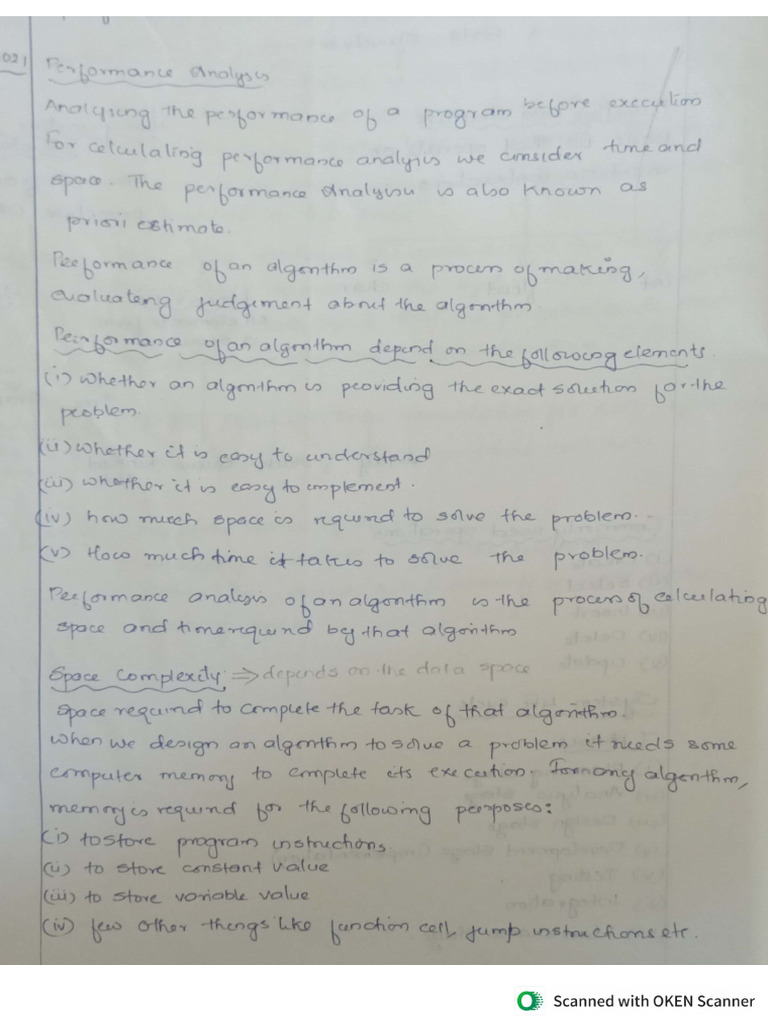 021
Performance Analysis
Analysing the performance of a program before execution
For calculating performance analysis we consider time and
space. The performance Analysis is also known as
priori estimate.
Performance of an algorithm is a process of making,
evaluating judgement about the algorithm
Performance of an algorithm depend on the following elements.
(i) whether an algorithm is providing the exact solution for the
problem.
(ii) whether it is easy to understand
(iii) whether it is easy to implement.
(iv) how much space is required to solve the problem.
(v) How much time it takes to solve the problem.
Performance analysis of an algorithm is the process of calculating
space and time required by that algorithm
Space Complexity: ⇒ depends on the data space
space required to complete the task of that algorithm.
when we design an algorithm to solve a problem it needs some
computer memory to complete its execution. For any algorithm,
memory is required for the following purposes:
(i) to store program instructions.
(ii) to store constant value
(iii) to store variable value
(iv) few other things like function call, jump instructions etc.
Scanned with OKEN Scanner